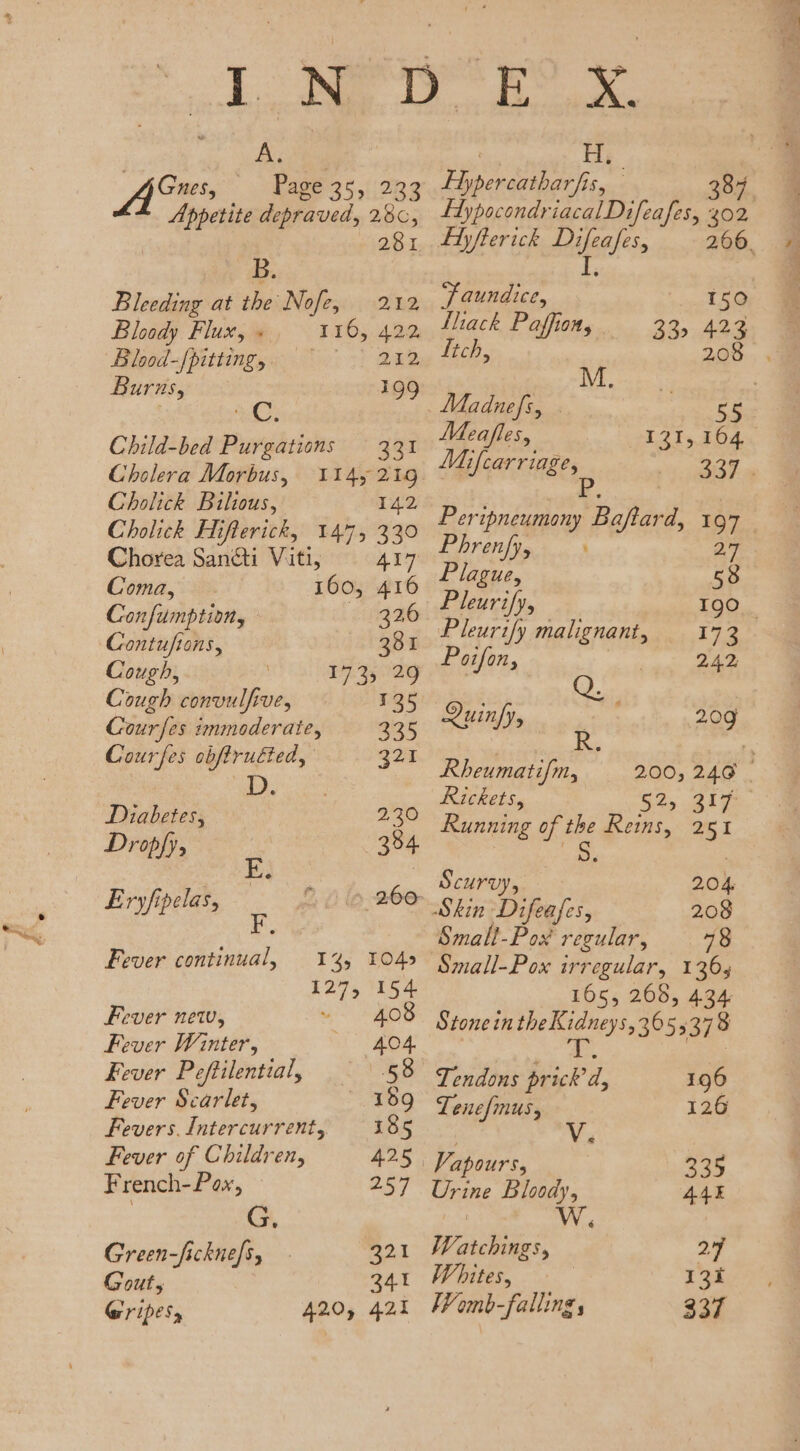 INDEX.
A.
AGues, Page 35, 233
Appetite depraved, 280,
281
B.
Bleeding at the Noſe, 212
Bloody Flux, 116, 422
Blood-ſpitting, 212
Burns, 199
C.
Child-bed Purgations 331
Cholera Morbus, 114, 219
Cholick Bilious, 142
Cholick Hiſterick, 147, 330
Chorea Sancti Viti, 417
Coma, 160, 416
Conſumption, 326
Contuſions, 381
Cough, 173, 29
Cough convulſive, 135
Courſes immoderate, 335
Courſes obſtructed, 321
D.
Diabetes, 230
Dropſy, 384
E.
Eryſipelas, 260
F.
Fever continual, 13, 104,
127, 154
Fever new, 408
Fever Winter, 404
Fever Peſtilential, 58
Fever Scarlet, 189
Fevers Intercurrent, 185
Fever of Children, 425
French-Pox, 257
G.
Green-ſickneſs, 321
Gout, 341
Gripes, 420, 421
H.
Hypercatharſis, 387
Hypocondriacal Diſeaſes, 302
Hyſterick Diſeaſes, 266
I.
Jaundice, 150
Iliack Paſſion, 33, 423
Itch, 208
M.
Madneſs, 55
Meaſles, 131, 164
Miſcarriage, 337
P.
Peripneumony Baſtard, 197
Phrenſy, 27
Plague, 58
Pleuriſy, 190
Pleuriſy malignant, 173
Poiſon, 242
Q.
Quinſy, 209
R.
Rheumatiſm, 200, 246
Rickets, 52, 317
Running of the Reins, 251
S.
Scurvy, 204
Skin Diſeaſes, 208
Small-Pox regular, 78
Small-Pox irregular, 136,
165, 268, 434
Stone in the Kidneys, 365, 378
T.
Tendons prick'd, 196
Teneſmus, 126
V.
Vapours, 335
Urine Bloody, 441
W.
Watchings, 27
Whites, 131
Womb-falling, 337